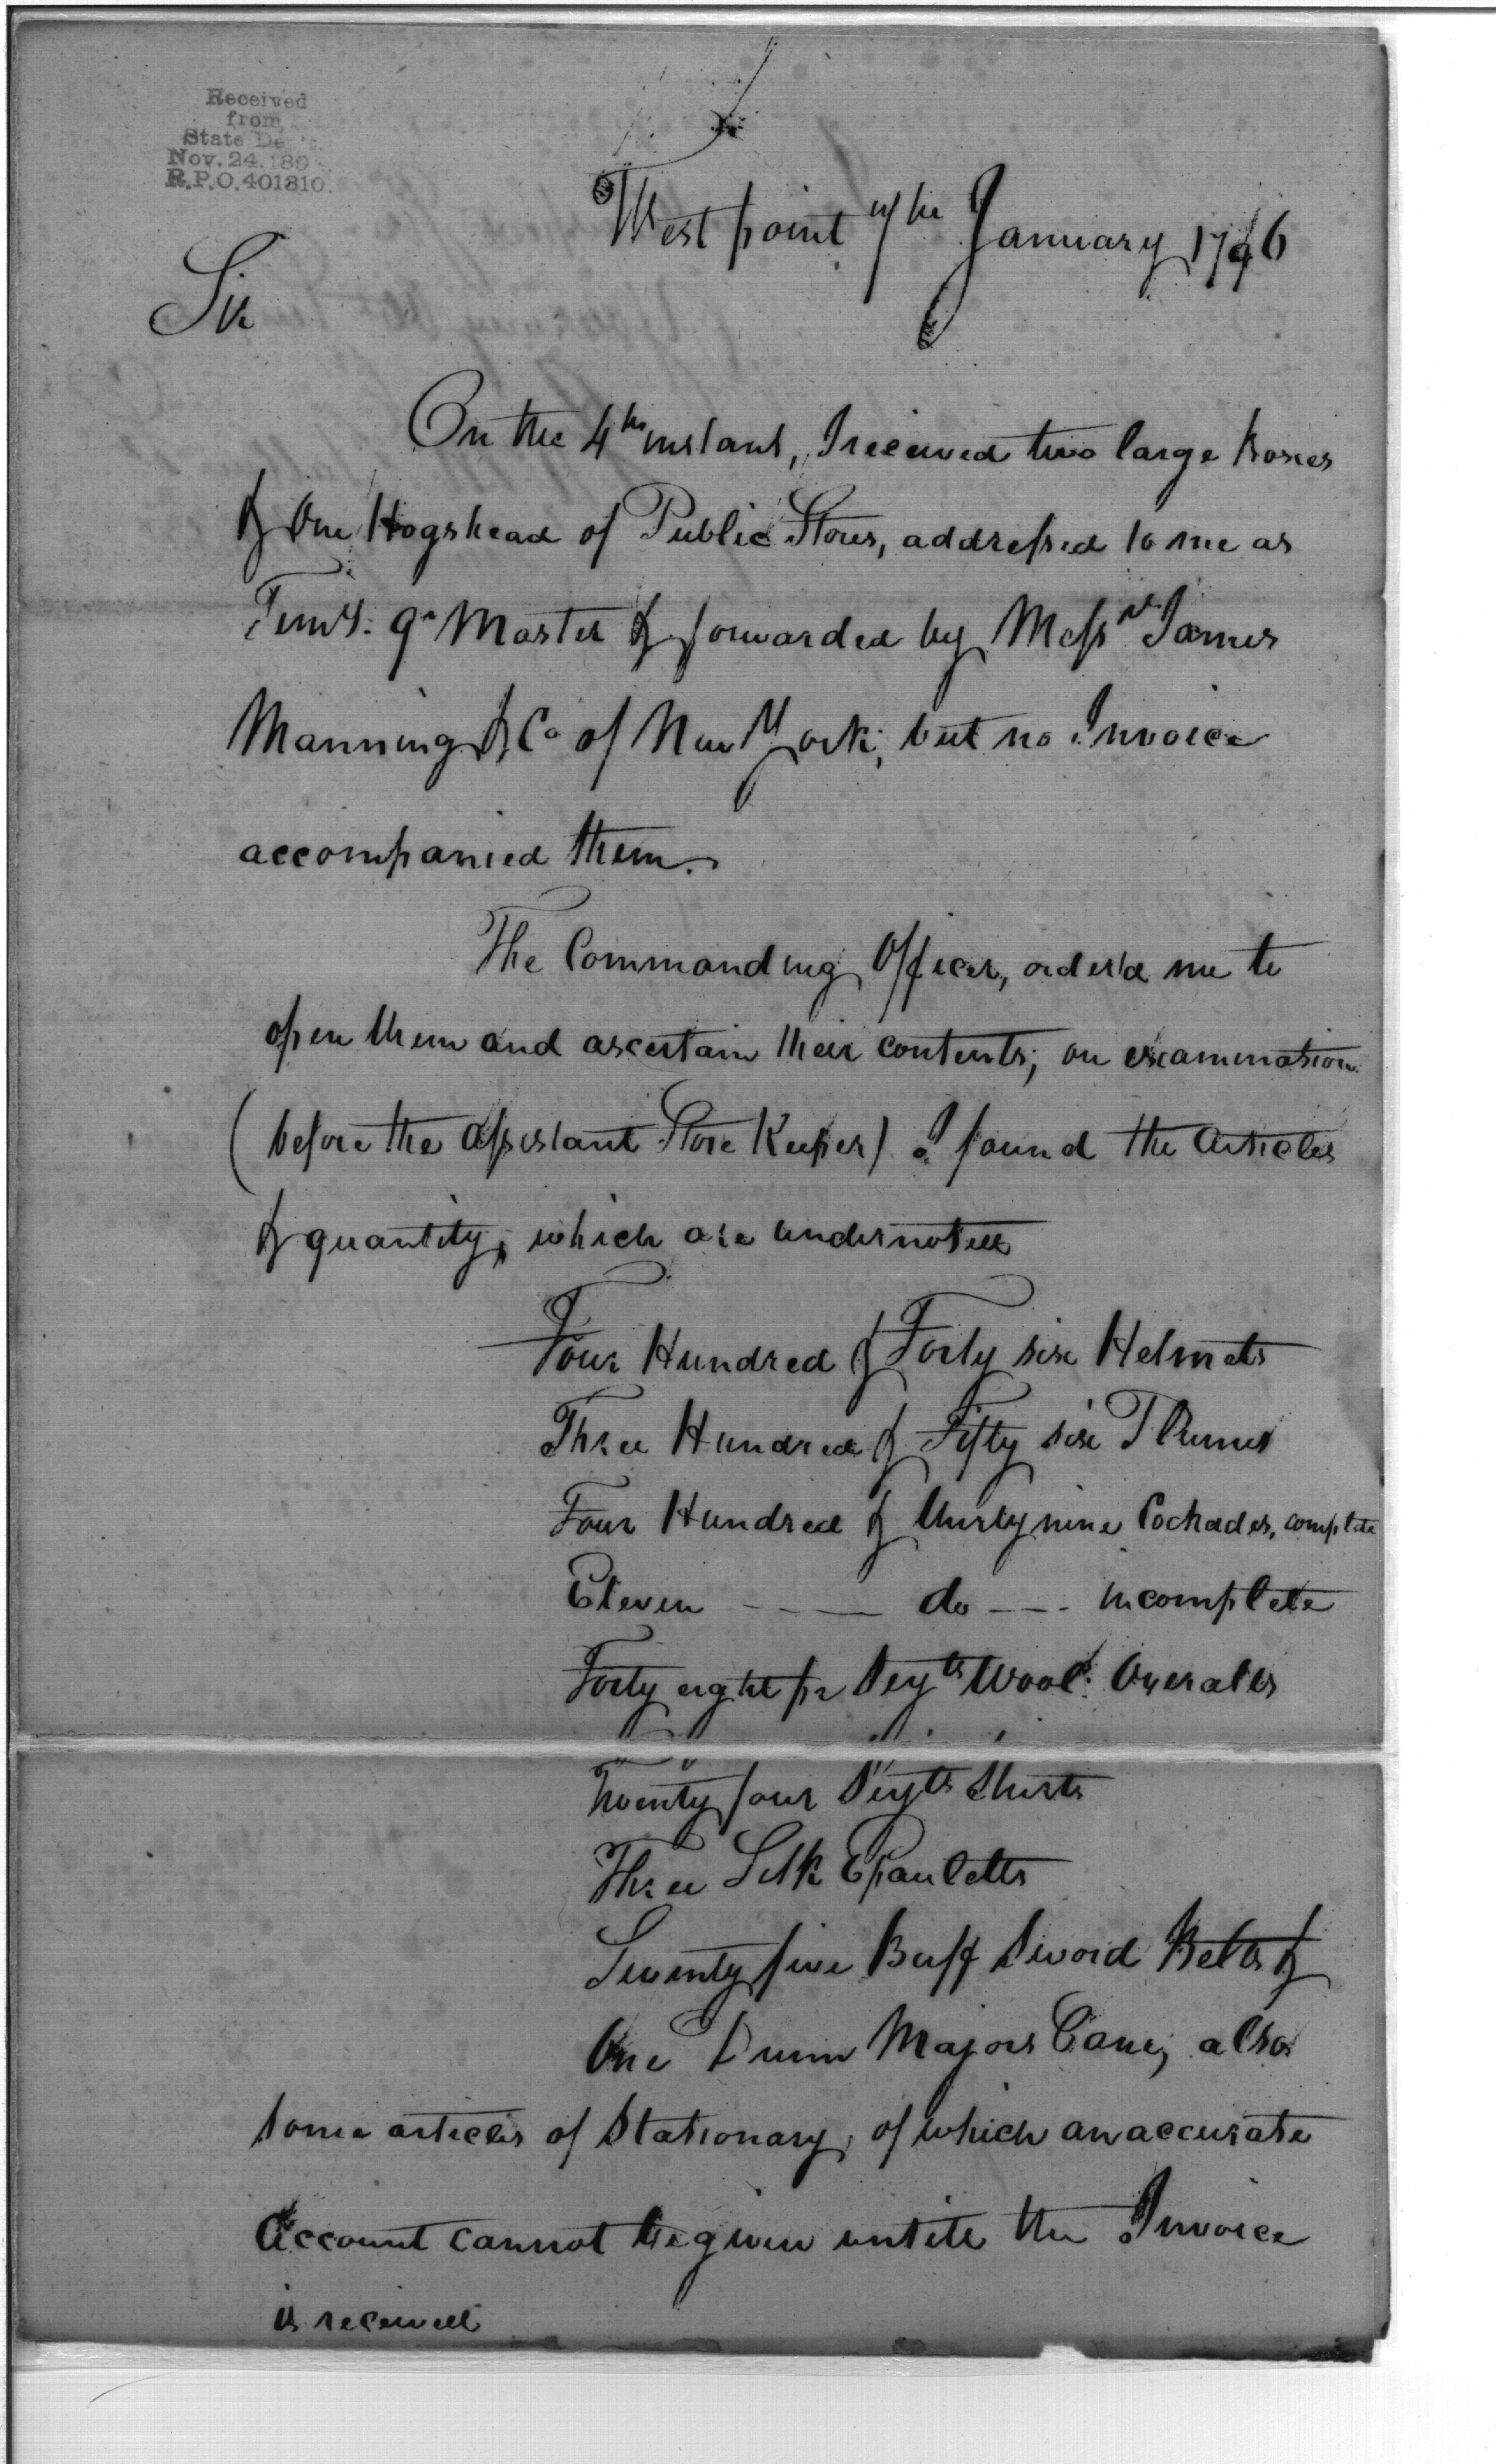 Received
from
State De
Nov. 24. 180
R.P.O. 401810.
West point 7th January 1796
Sir
On the 4th instant, I received two large Boxes
& One Hogshead of Public Stores, addressed to me as
Temy. Qr Master & forwarded by Messrs James
Manning & Co of New York; but no Invoice
accompanied them.
The Commanding Officer, order'd me to
open them and ascertain their contents; on examination
(before the Assistant Store Keeper) I found the Articles
& quantity, which are undernoted
Four Hundred & Forty six Helmets
Three Hundred & Fifty six Plumes
Four Hundred & thirty nine Cockades, complete
Eleven ---- do --- incomplete
Forty eight pr Serjts Wool. Overalls
Twenty four Serjts Shirts
Three Silk Epauletts
Seventy five Buff Sword Belts &
One Drum Majors Cane; also
some articles of Stationary, of which an accurate
Account cannot be given untill the Invoice
is received